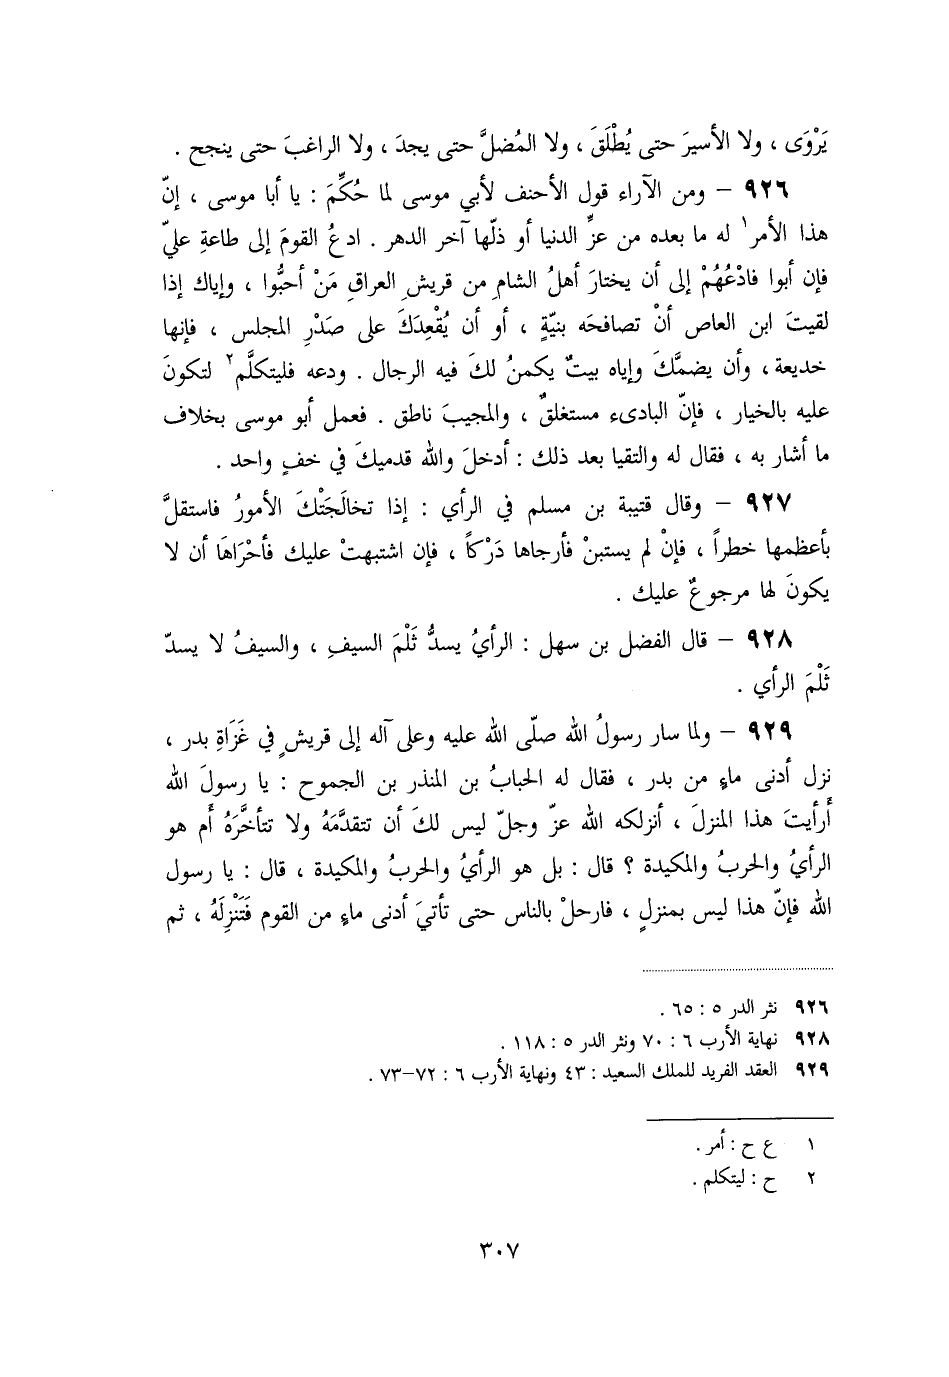 يَرْوَى ، ولا الأسيرَ حتى يُطْلَقَ ، ولا المُضلَّ حتى يجدَ ، ولا الراغبَ حتى ينجح .
٩٢٦ – ومن الآراء قول الأحنف لأبي موسى لما حُكِّمَ : يا أبا موسى ، إنّ
هذا الأمر١ له ما بعده من عزِّ الدنيا أو ذلّها آخر الدهر . ادعُ القومَ إلى طاعةِ عليّ
فإن أبوا فادْعُهُمْ إلى أن يختارَ أهلُ الشامِ من قريشِ العراقِ مَنْ أحبُّوا ، وإياك إذا
لقيتَ ابن العاص أنْ تصافحَه بنيّةٍ ، أو أن يُقْعِدَكَ على صَدْرِ المجلس ، فإنها
خديعة ، وأن يضمَّكَ وإياه بيتٌ يكمنُ لكَ فيه الرجال . ودعه فليتكلَّم٢ لتكونَ
عليه بالخيار ، فإنّ البادىء مستغلقٌ ، والمجيبَ ناطق . فعمل أبو موسى بخلاف
ما أشار به ، فقال له والتقيا بعد ذلك : أدخلَ والله قدميكَ في خفٍ واحد .
٩٢٧ – وقال قتيبة بن مسلم في الرأي : إذا تخالَجَتْكَ الأمورُ فاستقلَّ
بأعظمها خطراً ، فإنْ لم يستبنْ فأرجاها دَرْكاً ، فإن اشتبهتْ عليك فأحْرَاهَا أن لا
يكونَ لها مرجوعٌ عليك .
٩٢٨ – قال الفضل بن سهل : الرأيُ يسدُّ ثَلْمَ السيفِ ، والسيفُ لا يسدّ
ثَلْمَ الرأي .
٩٢٩ – ولما سار رسولُ الله صلّى الله عليه وعلى آله إلى قريشٍ في غَزَاةِ بدر ،
نزل أدنى ماءٍ من بدر ، فقال له الحبابُ بن المنذر بن الجموح : يا رسولَ الله
أَرأيتَ هذا المنزلَ ، أنزلكه الله عزّ وجلّ ليس لكَ أن تتقدَّمَهُ ولا تتأخَّرَهُ أَم هو
الرأيُ والحربُ والمكيدة ؟ قال : بل هو الرأيُ والحربُ والمكيدة ، قال : يا رسول
الله فإنّ هذا ليس بمنزلٍ ، فارحلْ بالناس حتى تأتيَ أدنى ماءٍ من القوم فَتَنْزِلَهُ ، ثم
٩٢٦ نثر الدر ٥ : ٦٥ .
٩٢٨ نهاية الأرب ٦ : ٧٠ ونثر الدر ٥ : ١١٨ .
٩٢٩ العقد الفريد للملك السعيد : ٤٣ ونهاية الأرب ٦ : ٧٢–٧٣ .
١ ع ح : أمر .
٢ ح : ليتكلم .
٣٠٧